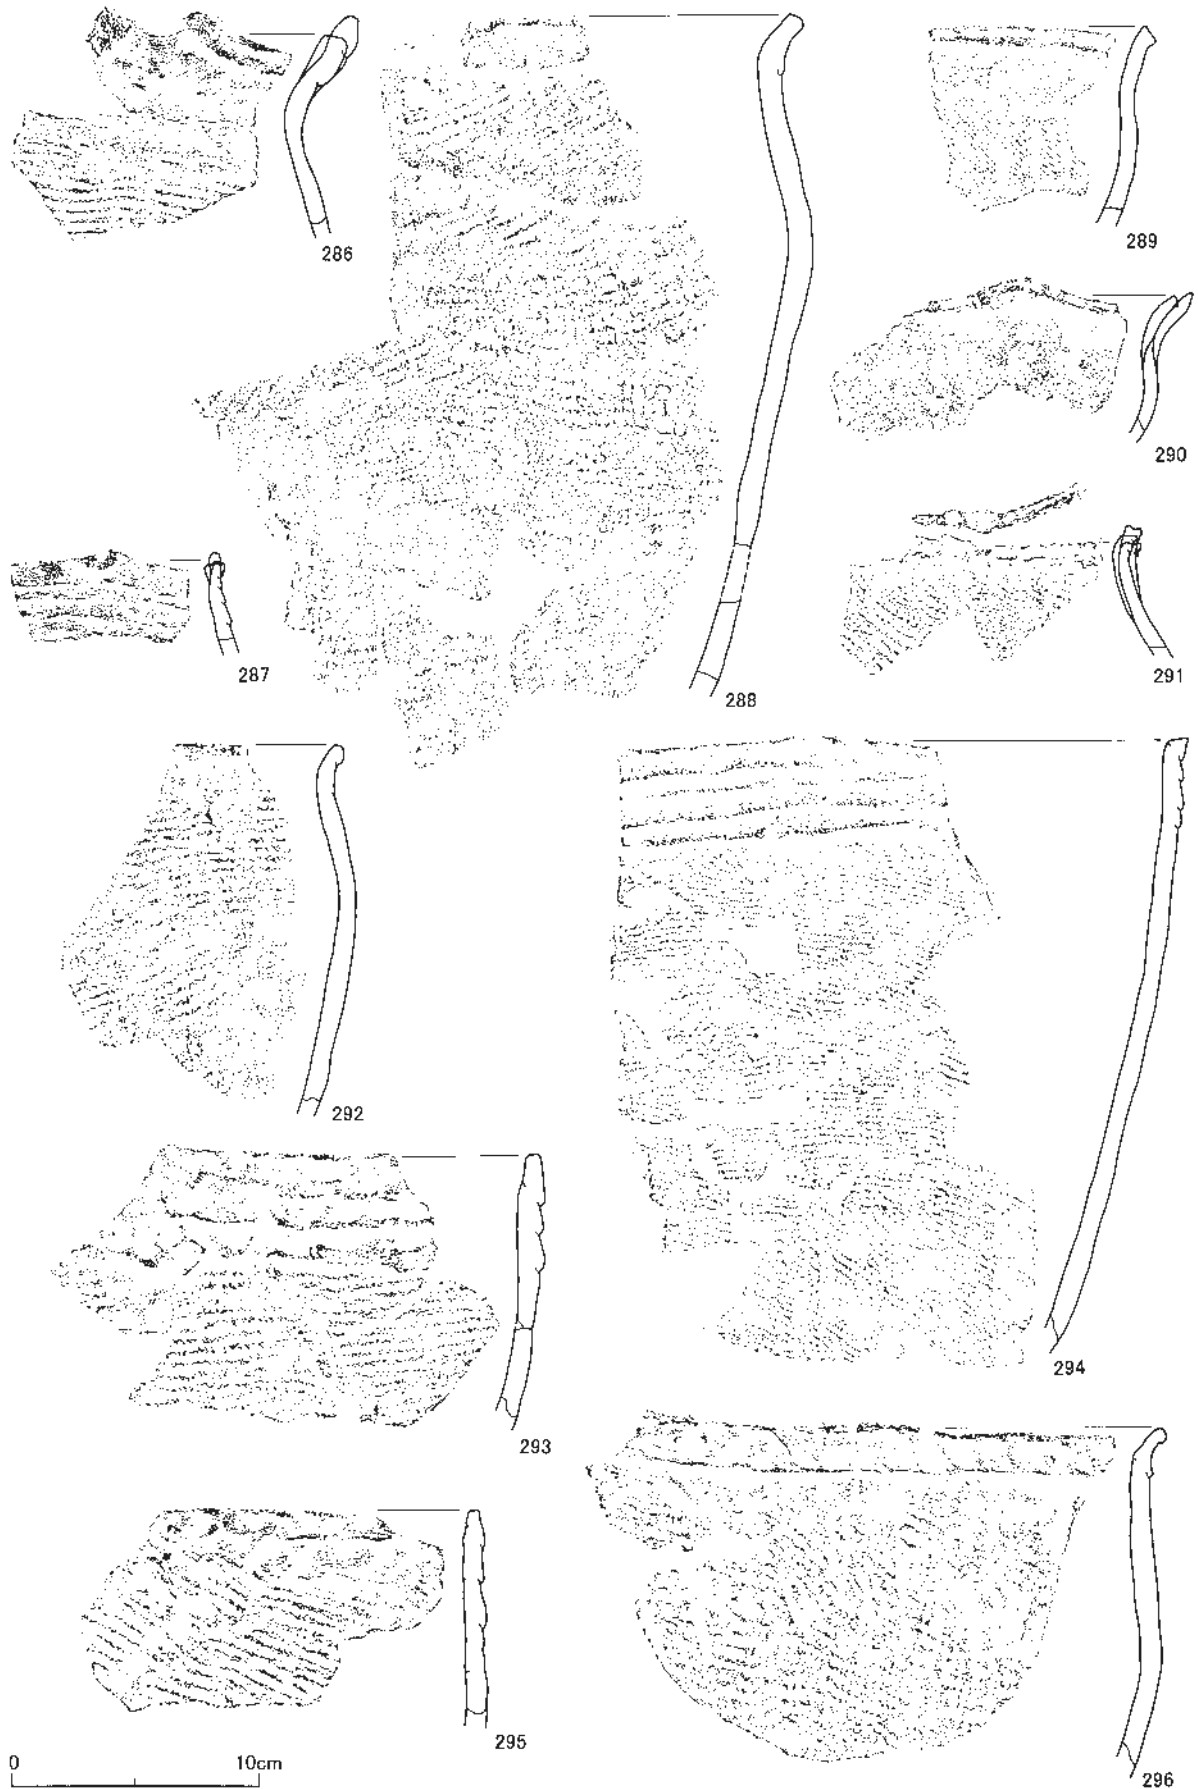 286
287
288
289
290
291
292
293
294
295
296
0 10cm